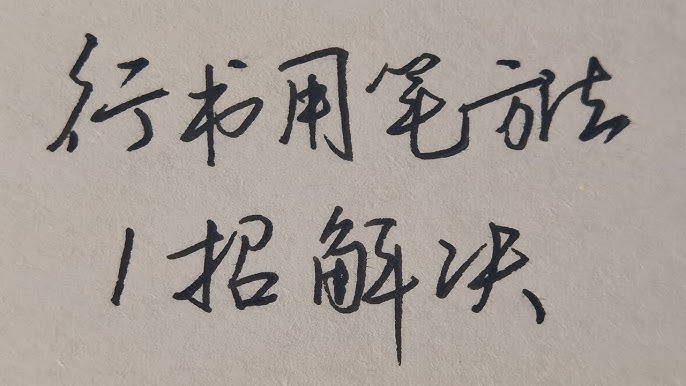 行书用笔方法
1招解决